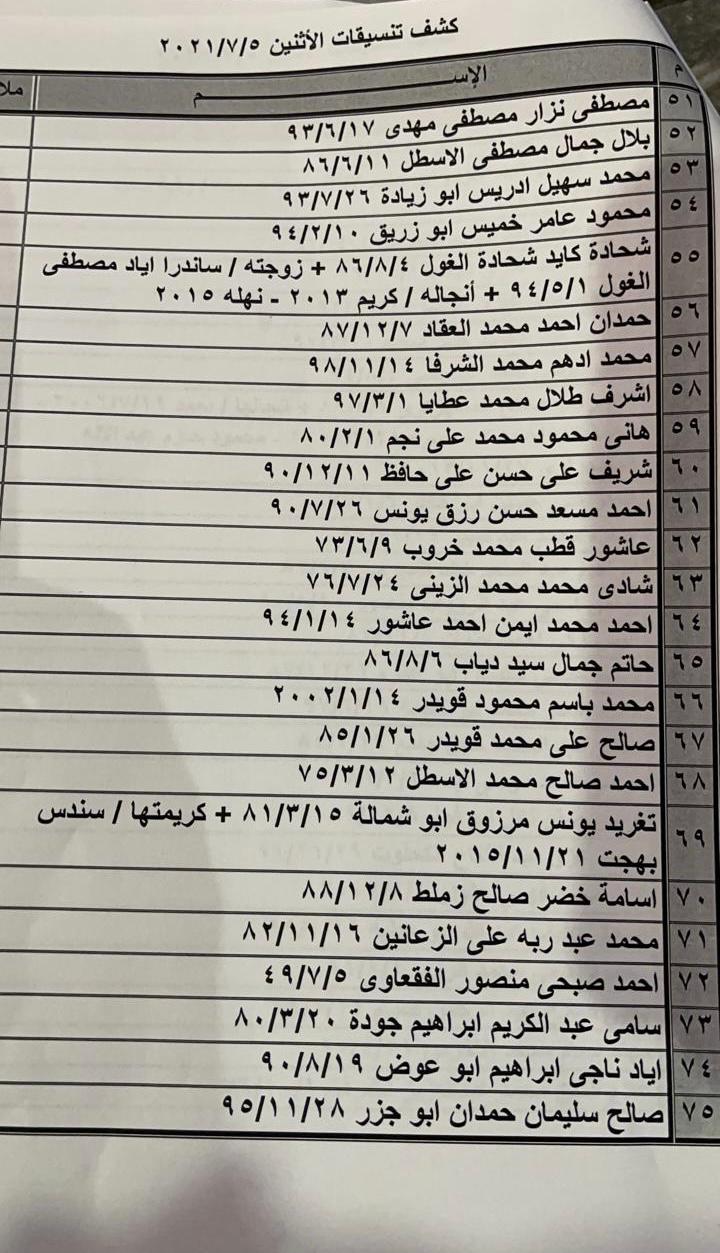 كشف تنسيقات الأثنين ٢٠٢١/٧/٥
م الإســـــــــــــــم
٥١ مصطفى نزار مصطفى مهدى ٩٣/٦/١٧
٥٢ بلال جمال مصطفى الاسطل ٨٦/٦/١١
٥٣ محمد سهيل ادريس ابو زيادة ٩٣/٧/٢٦
٥٤ محمود عامر خميس ابو زريق ٩٤/٢/١٠
٥٥ شحادة كايد شحادة الغول ٨٦/٨/٤ + زوجته / ساندرا اياد مصطفى
الغول ٩٤/٥/١ + أنجاله / كريم ٢٠١٣ - نهله ٢٠١٥
٥٦ حمدان احمد محمد العقاد ٨٧/١٢/٧
٥٧ محمد ادهم محمد الشرفا ٩٨/١١/١٤
٥٨ اشرف طلال محمد عطايا ٩٧/٣/١
٥٩ هانى محمود محمد على نجم ٨٠/٢/١
٦٠ شريف على حسن على حافظ ٩٠/١٢/١١
٦١ احمد مسعد حسن رزق يونس ٩٠/٧/٢٦
٦٢ عاشور قطب محمد خروب ٧٣/٦/٩
٦٣ شادى محمد محمد الزينى ٧٦/٧/٢٤
٦٤ احمد محمد ايمن احمد عاشور ٩٤/١/١٤
٦٥ حاتم جمال سيد دياب ٨٦/٨/٦
٦٦ محمد باسم محمود قويدر ٢٠٠٢/١/١٤
٦٧ صالح على محمد قويدر ٨٥/١/٢٦
٦٨ احمد صالح محمد الاسطل ٧٥/٣/١٢
٦٩ تغريد يونس مرزوق ابو شمالة ٨١/٣/١٥ + كريمتها / سندس
بهجت ٢٠١٥/١١/٢١
٧٠ اسامة خضر صالح زملط ٨٨/١٢/٨
٧١ محمد عبد ربه على الزعانين ٨٢/١١/١٦
٧٢ احمد صبحى منصور الفقعاوى ٤٩/٧/٥
٧٣ سامى عبد الكريم ابراهيم جودة ٨٠/٣/٢٠
٧٤ اياد ناجى ابراهيم ابو عوض ٩٠/٨/١٩
٧٥ صالح سليمان حمدان ابو جزر ٩٥/١١/٢٨